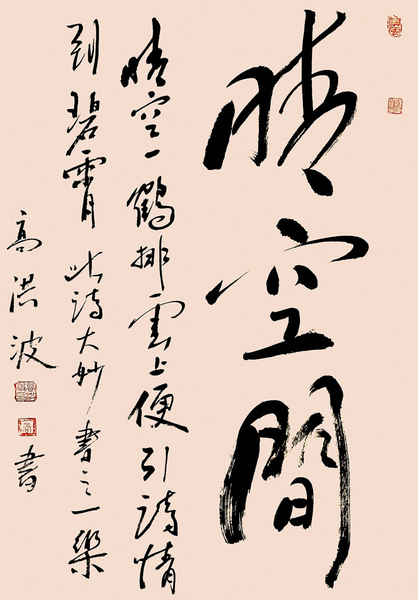 晴空間
晴空一鶴排雲上便引詩情
到碧霄此詩大妙書之一樂
高洪波書